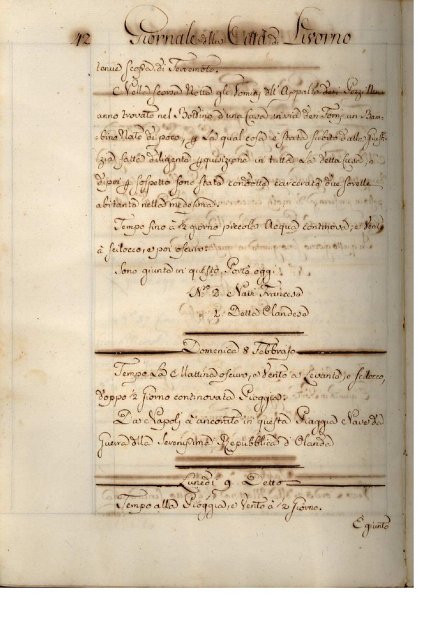 42 Giornale della Città di Livorno
tenue scossa di Terremoto.
Nella scorsa Notte gli Uomini all'Appalto dei Pozzi
anno trovato nel Bottino d'una Casa in via un Bam=
bino Nato di poco, la qual cosa è stata
fatta diligente perquisizione in tutta la detta
di poi sospetto sono state condotte carcerate due sorelle
abitanti nella medesima.
Tempo fino a ½ giorno piccola Acqua continova, e Vento
à scilocco, e poi oscuro.
Sono giunte in questo Porto oggi
N.° 2. Nave Francesa
1. Detta Olandesa
Domenica 8 Febbraio
Tempo La Mattina oscuro, e Vento a Levante, e scilocco,
doppo ½ giorno continovata Pioggia.
Da Napoli à ancorato in questa Piaggia Nave da
Guerra della Serenissima Repubblica d'Olanda
Lunedì 9. Detto
Tempo alla Pioggia, e Vento à ½ giorno.
È giunto